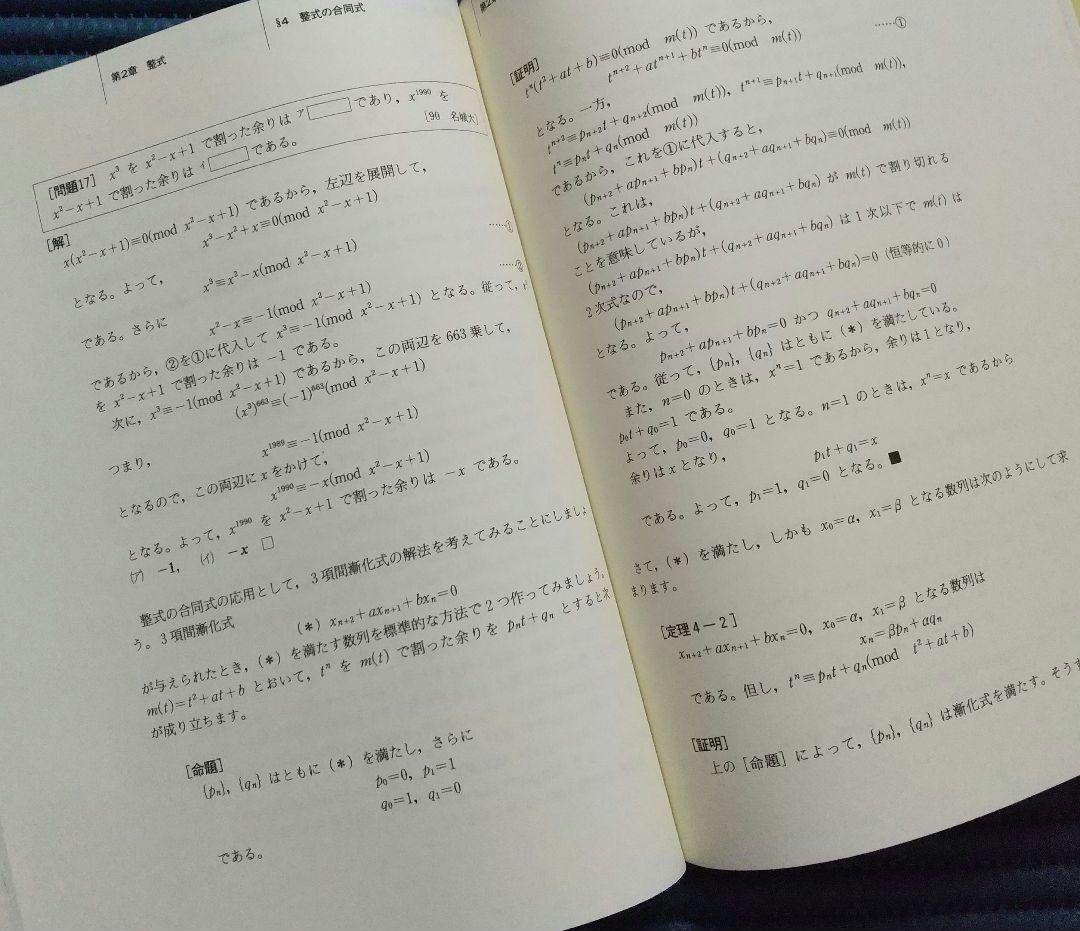 §4　整式の合同式
第2章　整式
[問題17]　x³ を x²−x+1 で割った余りは ア□ であり，x¹⁹⁹⁰ を
x²−x+1 で割った余りは ィ□ である。
[90　名城大]
[解]
x(x²−x+1)≡0(mod　x²−x+1) であるから，左辺を展開して，
x³−x²+x≡0(mod　x²−x+1)
となる。よって，
x³≡x²−x(mod　x²−x+1) ……①
である。さらに
x²−x≡−1(mod　x²−x+1) ……②
であるから，②を①に代入して x³≡−1(mod　x²−x+1) となる。従って，
を x²−x+1 で割った余りは −1 である。
次に，x³≡−1(mod　x²−x+1) であるから，この両辺を 663 乗して，
(x³)⁶⁶³≡(−1)⁶⁶³(mod　x²−x+1)
つまり，
x¹⁹⁸⁹≡−1(mod　x²−x+1)
となるので，この両辺に x をかけて，
x¹⁹⁹⁰≡−x(mod　x²−x+1)
となる。よって，x¹⁹⁹⁰ を x²−x+1 で割った余りは −x である。
(ア)　−1，　(イ)　−x　□
整式の合同式の応用として，3項間漸化式の解法を考えてみることにしましょ
う。3項間漸化式
(＊)　xₙ₊₂+axₙ₊₁+bxₙ=0
が与えられたとき，(＊) を満たす数列を標準的な方法で2つ作ってみましょう。
m(t)=t²+at+b とおいて，tⁿ を m(t) で割った余りを pₙt+qₙ とすると
が成り立ちます。
[命題]
{pₙ}，{qₙ} はともに (＊) を満たし，さらに
p₀=0，p₁=1
q₀=1，q₁=0
である。
第2章
[証明]
tⁿ(t²+at+b)≡0(mod　m(t)) であるから，
tⁿ⁺²+atⁿ⁺¹+btⁿ≡0(mod　m(t)) ……①
となる。一方，
tⁿ⁺²≡pₙ₊₂t+qₙ₊₂(mod　m(t))，tⁿ⁺¹≡pₙ₊₁t+qₙ₊₁(mod　m(t))，
tⁿ≡pₙt+qₙ(mod　m(t))
であるから，これを①に代入すると，
(pₙ₊₂+apₙ₊₁+bpₙ)t+(qₙ₊₂+aqₙ₊₁+bqₙ)≡0(mod　m(t))
となる。これは，
(pₙ₊₂+apₙ₊₁+bpₙ)t+(qₙ₊₂+aqₙ₊₁+bqₙ) が m(t) で割り切れる
ことを意味しているが，
(pₙ₊₂+apₙ₊₁+bpₙ)t+(qₙ₊₂+aqₙ₊₁+bqₙ) は1次以下で m(t) は
2次式なので，
(pₙ₊₂+apₙ₊₁+bpₙ)t+(qₙ₊₂+aqₙ₊₁+bqₙ)=0 (恒等的に0)
となる。よって，
pₙ₊₂+apₙ₊₁+bpₙ=0 かつ qₙ₊₂+aqₙ₊₁+bqₙ=0
である。従って，{pₙ}，{qₙ} はともに (＊) を満たしている。
また，n=0 のときは，xⁿ=1 であるから，余りは1となり，
p₀t+q₀=1 である。
よって，p₀=0，q₀=1 となる。n=1 のときは，xⁿ=x であるから
余りはxとなり，
p₁t+q₁=x
である。よって，p₁=1，q₁=0 となる。■
さて，(＊) を満たし，しかも x₀=α，x₁=β となる数列は次のようにして求
まります。
[定理4－2]
xₙ₊₂+axₙ₊₁+bxₙ=0，x₀=α，x₁=β となる数列は
xₙ=βpₙ+αqₙ
である。但し，tⁿ≡pₙt+qₙ(mod　t²+at+b)
[証明]
上の [命題] によって，{pₙ}，{qₙ} は漸化式を満たす。そうす